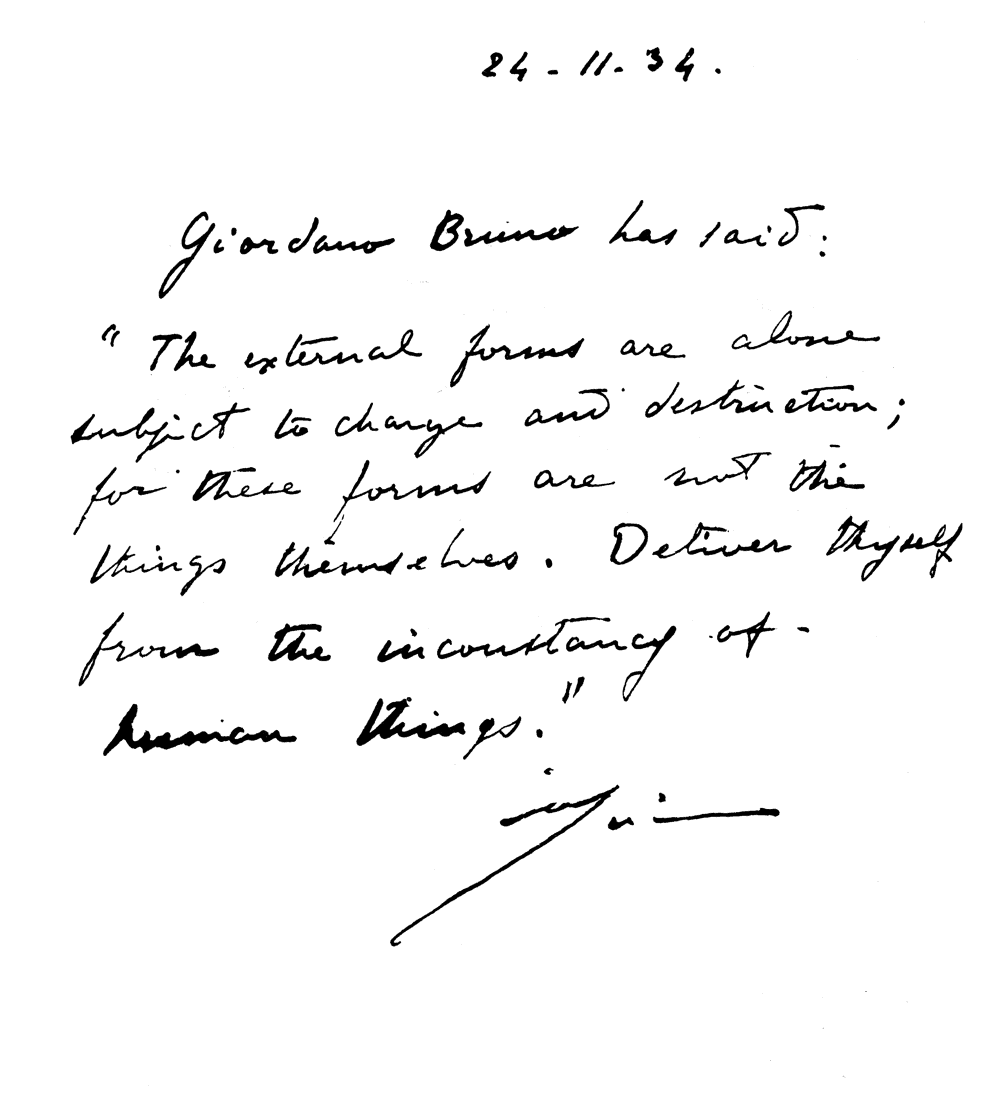 24-11-34.
Giordano Bruno has said:
"The external forms are alone
subject to change and destruction;
for these forms are not the
things themselves. Deliver thyself
from the inconstancy of -
human things."